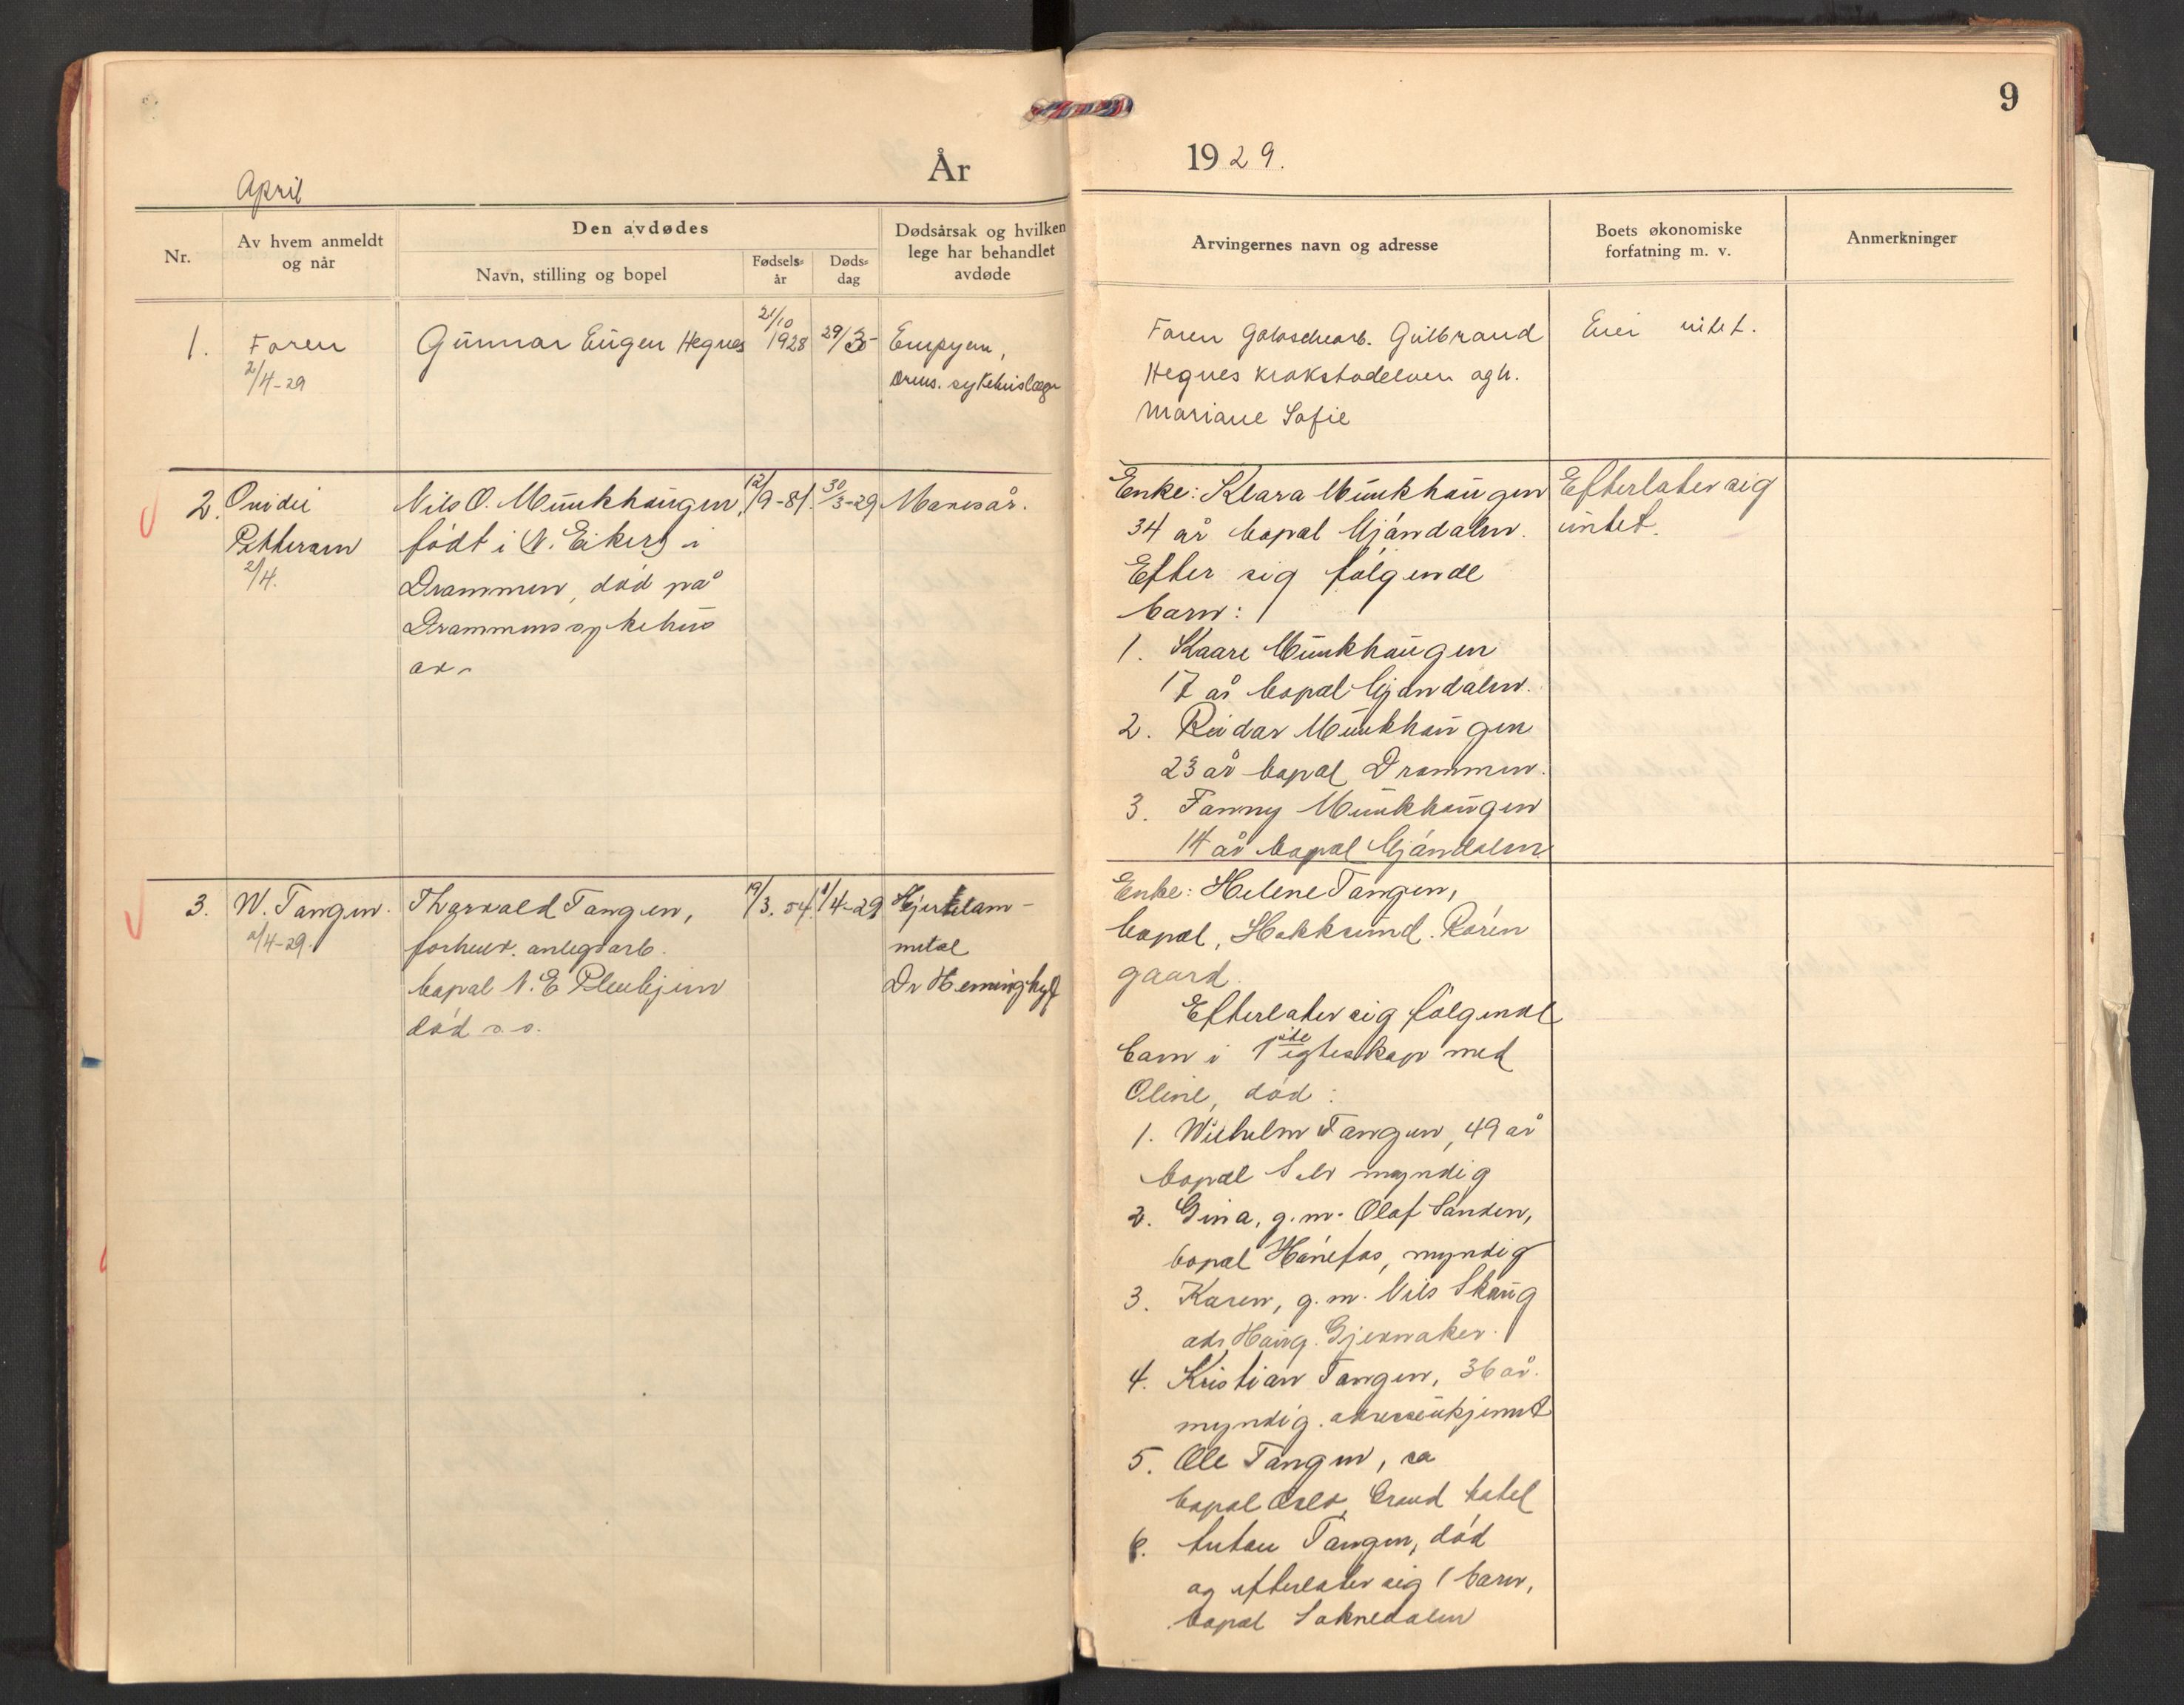 9
År 1929.
April
Nr.
Av hvem anmeldt
og når
Den avdødes
Navn, stilling og bopel
Fødsels-
år
Døds-
dag
Dødsårsak og hvilken
lege har behandlet
avdøde
Arvingernes navn og adresse
Boets økonomiske
forfatning m. v.
Anmerkninger
1.
Faren
2/4-29
Gunnar Eugen Hegnes
21/10
1928
29/3
Empyem,
Drms. sykehuslæge
Faren Gulbrand
Hegnes Krokstadelven og h.
Mariane Sofie
Eiei intet.
2.
Ovidei
Pettersen
2/4.
Nils O. Munkhaugen,
født i N. Eiker, i
Drammen, død på
Drammens sykehus
12/9-81.
30/3-29
Mavesår.
Enke: Klara Munkhaugen
34 år bopæl Mjøndalen.
Efter sig følgende
barn:
1. Kaare Munkhaugen
17 år bopæl Mjøndalen.
2. Reidar Munkhaugen
23 år bopæl Drammen.
3. Fanny Munkhaugen
14 år bopæl Mjøndalen
Efterlater sig
intet.
3.
W. Tangen.
2/4-29.
Thorvald Tangen,
forhenv. anlegsarb.
bopæl N. E
død s. s.
19/3. 54.
1/4-29
Hjertelam-
metse
Dr Heminghytt
Enke: Helene Tangen,
bopæl, Hokksund. Roren
gaard.
Efterlater sig følgende
barn i 1ste egteskap med
Oline, død:
1. Wilhelm Tangen, 49 år
bopæl Selv myndig
2. Gina, g. m. Olaf Sanden,
bopæl Hønefos, myndig
3. Karen, g. m. Nils Skaug
adr. Haug.
4. Kristian Tangen, 36 år.
myndig. adresse ukjennt
5. Ole Tangen, ca
bopæl Oslo, Grand hotel
6. Anton Tangen, død
og efterlater sig 1 barn,
bopæl Soknedalen